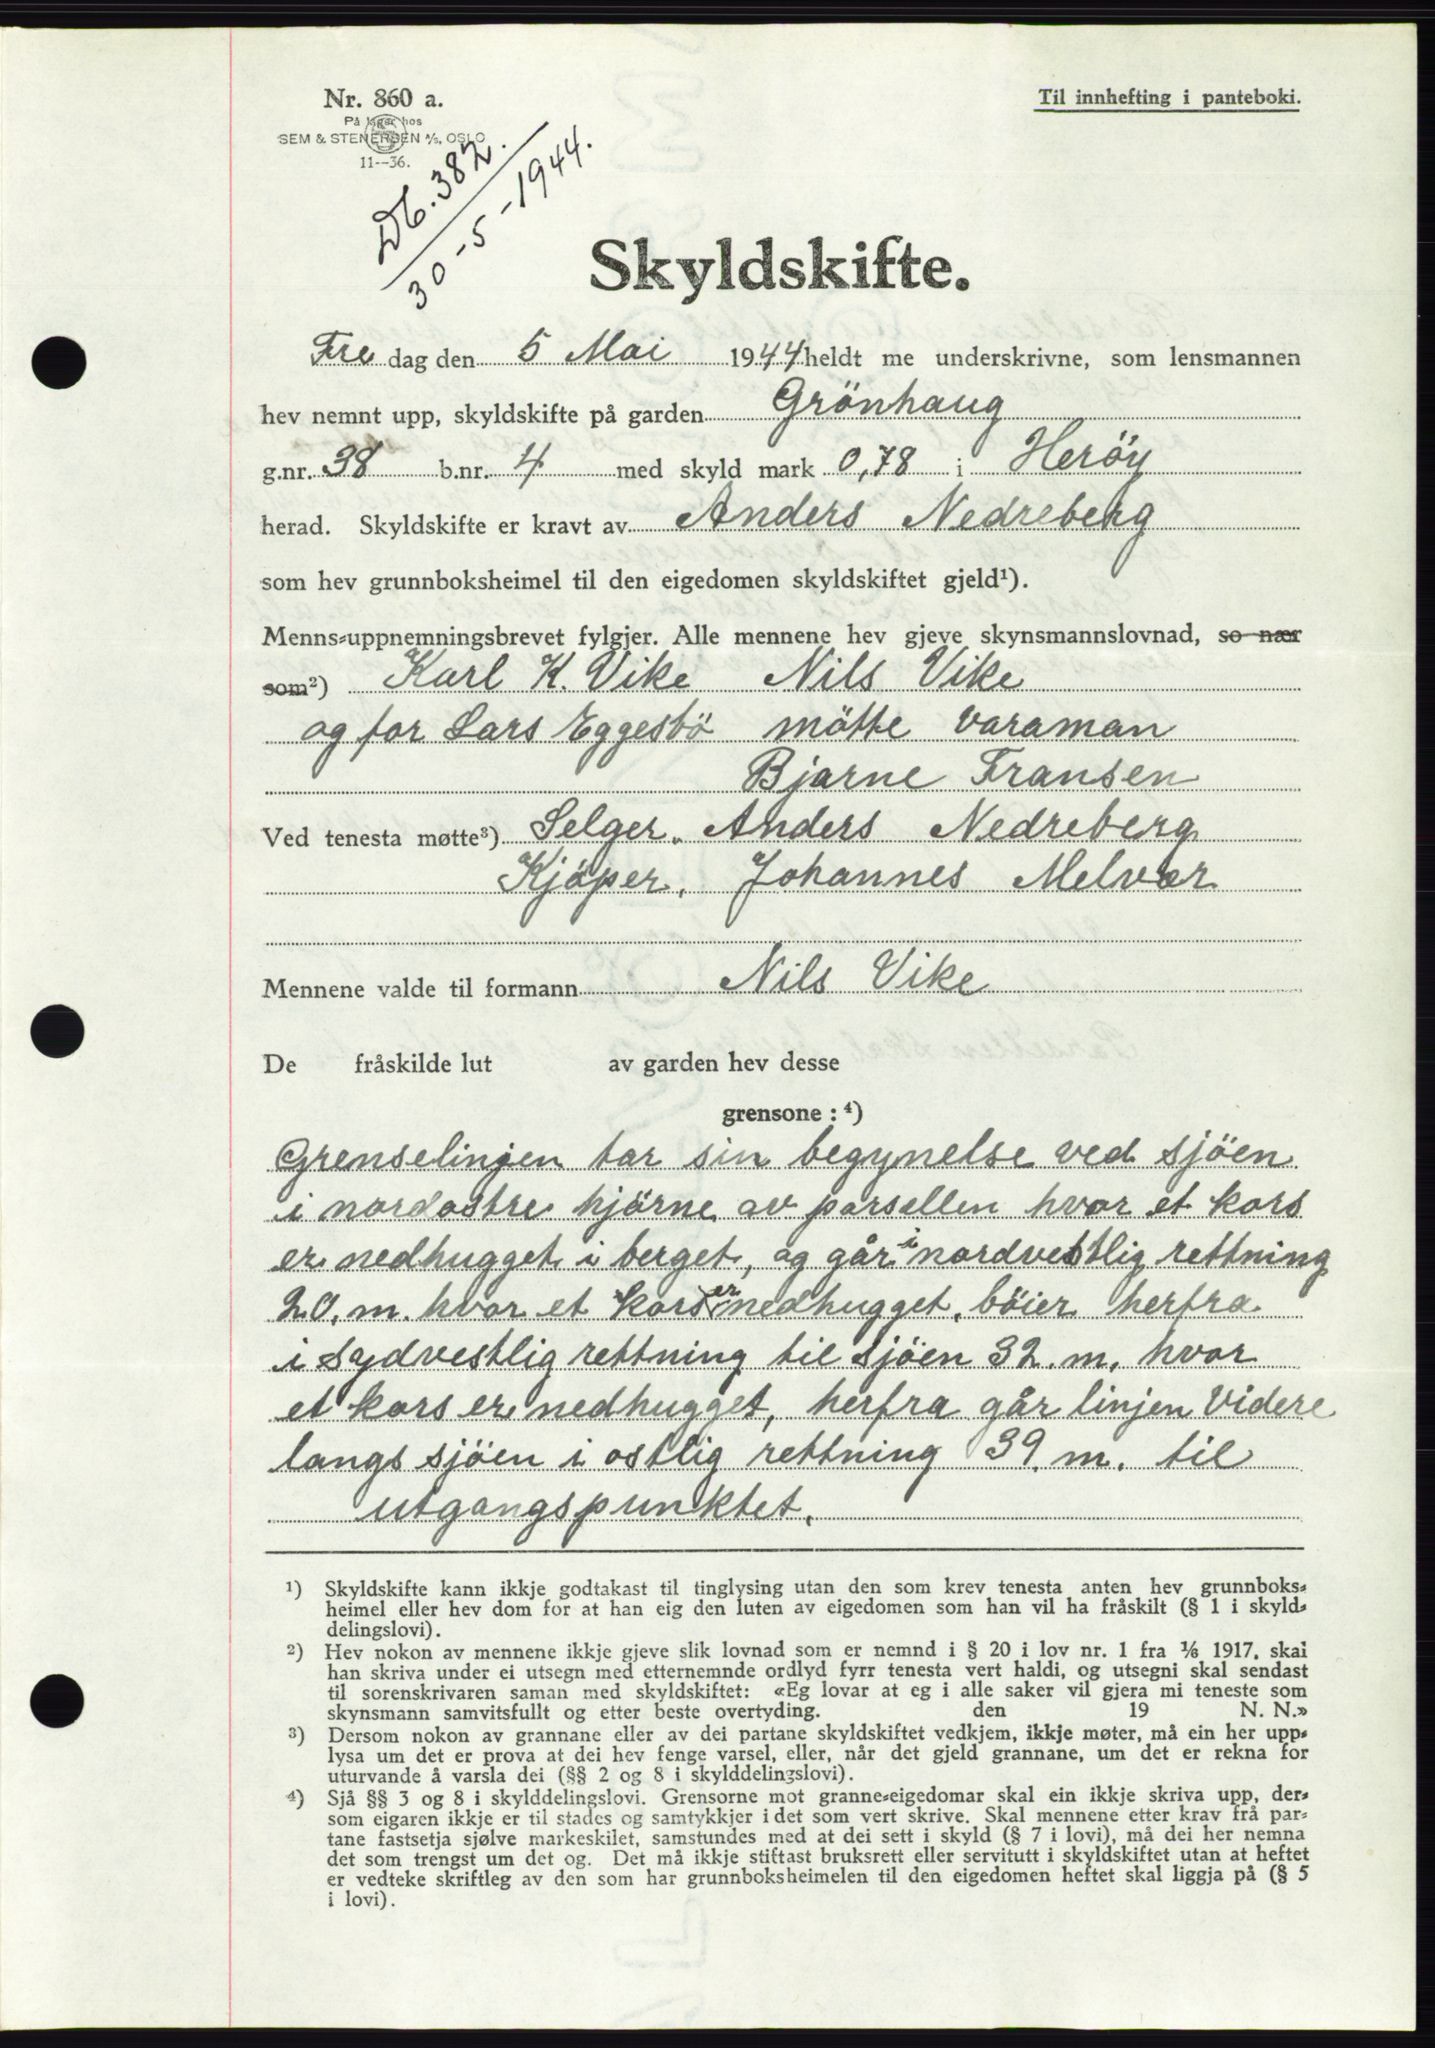 Nr. 860 a.
På lager hos
SEM & STENERSEN A/S, OSLO
11--36.
Til innhefting i panteboki.
Db. 382.
30-5-1944.
Skyldskifte.
Fre dag den 5 Mai 1944 heldt me underskrivne, som lensmannen
hev nemnt upp, skyldskifte på garden Grönhaug
g.nr. 38 b.nr. 4 med skyld mark 0,78 i Heröy
herad. Skyldskifte er kravt av Anders Nedreberg
som hev grunnboksheimel til den eigedomen skyldskiftet gjeld¹).
Menns-uppnemningsbrevet fylgjer. Alle mennene hev gjeve skynsmannslovnad, so nær
som²) Karl K. Vike Nils Vike
og for Lars Eggesbö mötte varaman
Bjarne Fransen
Ved tenesta møtte³) Selger. Anders Nedreberg
Kjöper, Johannes Melvær
Mennene valde til formann Nils Vike
De fråskilde lut av garden hev desse
grensone : ⁴)
Grenselinjen tar sin begynelse ved sjöen
i nordostre hjörne av parsellen hvor et kors
er nedhugget i berget, og går i nordvestlig rettning
20. m. hvor et kors er nedhugget, böier herfra
i sydvestlig rettning til sjöen 32. m. hvor
et kors er nedhugget, herfra går linjen videre
langs sjöen i ostlig rettning 39. m. til
utgangspunktet.
¹) Skyldskifte kann ikkje godtakast til tinglysing utan den som krev tenesta anten hev grunnboks-
heimel eller hev dom for at han eig den luten av eigedomen som han vil ha fråskilt (§ 1 i skyld-
delingslovi).
²) Hev nokon av mennene ikkje gjeve slik lovnad som er nemnd i § 20 i lov nr. 1 fra 1/6 1917, skal
han skriva under ei utsegn med etternemnde ordlyd fyrr tenesta vert haldi, og utsegni skal sendast
til sorenskrivaren saman med skyldskiftet: «Eg lovar at eg i alle saker vil gjera mi teneste som
skynsmann samvitsfullt og etter beste overtyding. den 19 N. N.»
³) Dersom nokon av grannane eller av dei partane skyldskiftet vedkjem, ikkje møter, må ein her upp-
lysa um det er prova at dei hev fenge varsel, eller, når det gjeld grannane, um det er rekna for
uturvande å varsla dei (§§ 2 og 8 i skylddelingslovi).
⁴) Sjå §§ 3 og 8 i skylddelingslovi. Grensorne mot granne-eigedomar skal ein ikkje skriva upp, der-
som eigaren ikkje er til stades og samtykkjer i det som vert skrive. Skal mennene etter krav frå par-
tane fastsetja sjølve markeskilet, samstundes med at dei sett i skyld (§ 7 i lovi), må dei her nemna
det som trengst um det og. Det må ikkje stiftast bruksrett eller servitutt i skyldskiftet utan at heftet
er vedteke skriftleg av den som har grunnboksheimelen til den eigedomen heftet skal liggja på (§ 5
i lovi).